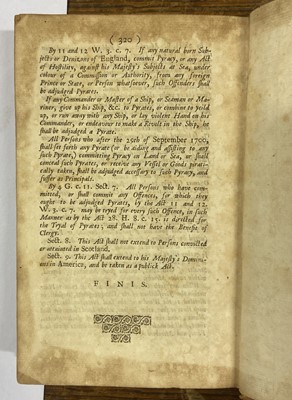 ( 320 )
By 11 and 12 W. 3. c. 7. If any natural born Sub-
jects or Denizens of England, commit Pyracy, or any Act
of Hostility, against his Majesty's Subjects at Sea, under
colour of a Commission or Authority, from any foreign
Prince or State, or Person whatsoever, such Offenders shall
be adjudged Pyrates.
If any Commander or Master of a Ship, or Seaman or Ma-
riner, give up his Ship, &c. to Pyrates, or combine to yeild
up, or run away with any Ship, or lay violent Hand on his
Commander, or endeavour to make a Revolt in the Ship, he
shall be adjudged a Pyrate.
All Persons who after the 29th of September 1700,
shall set forth any Pyrate (or be aiding and assisting to any
such Pyrate,) committing Pyracy in Land or Sea, or shall
conceal such Pyrates, or receive any Vessel or Goods pyrati-
cally taken, shall be adjudged accessary to such Pyracy, and
suffer as Principals.
By 4 G. c. 11. Sect. 7. All Persons who have com-
mitted, or shall commit any Offences, for which they
ought to be adjudged Pyrates, by the Act 11 and 12
W. 3. c. 7. may be tryed for every such Offence, in such
Manner as by the Act 28. H. 8. c. 15. is directed for
the Tryal of Pyrates, and shall not have the Benefit of
Clergy.
Sect. 8. This Act shall not extend to Persons convicted
or attainted in Scotland.
Sect. 9. This Act shall extend to his Majesty's Domini-
ons in America, and be taken as a publick Act.
FINIS.